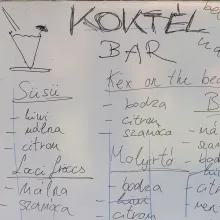 KOKTÉL
BAR
Süsü
- kiwi
- málna
- citrom
Laci fröccs
- Málna
- szamóca
Kex on the bea
- bodza
- citrom
- szamóca
Molyirtó
- bodza
- citrom
B
- má
- sza
- bod
- ki
- citr
- me